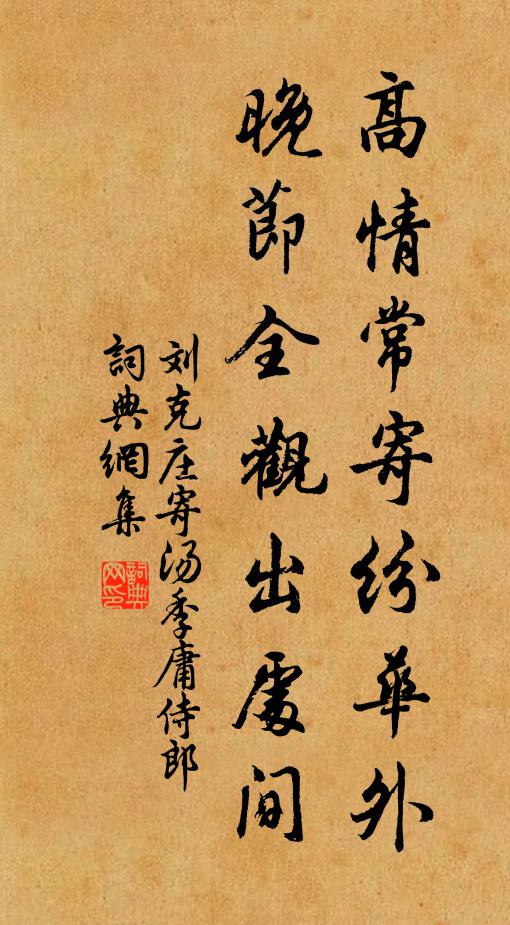 高情常寄紛華外
晚節全觀出處間
刘克庄寄汤季庸侍郎
詞典網集
詞典网印